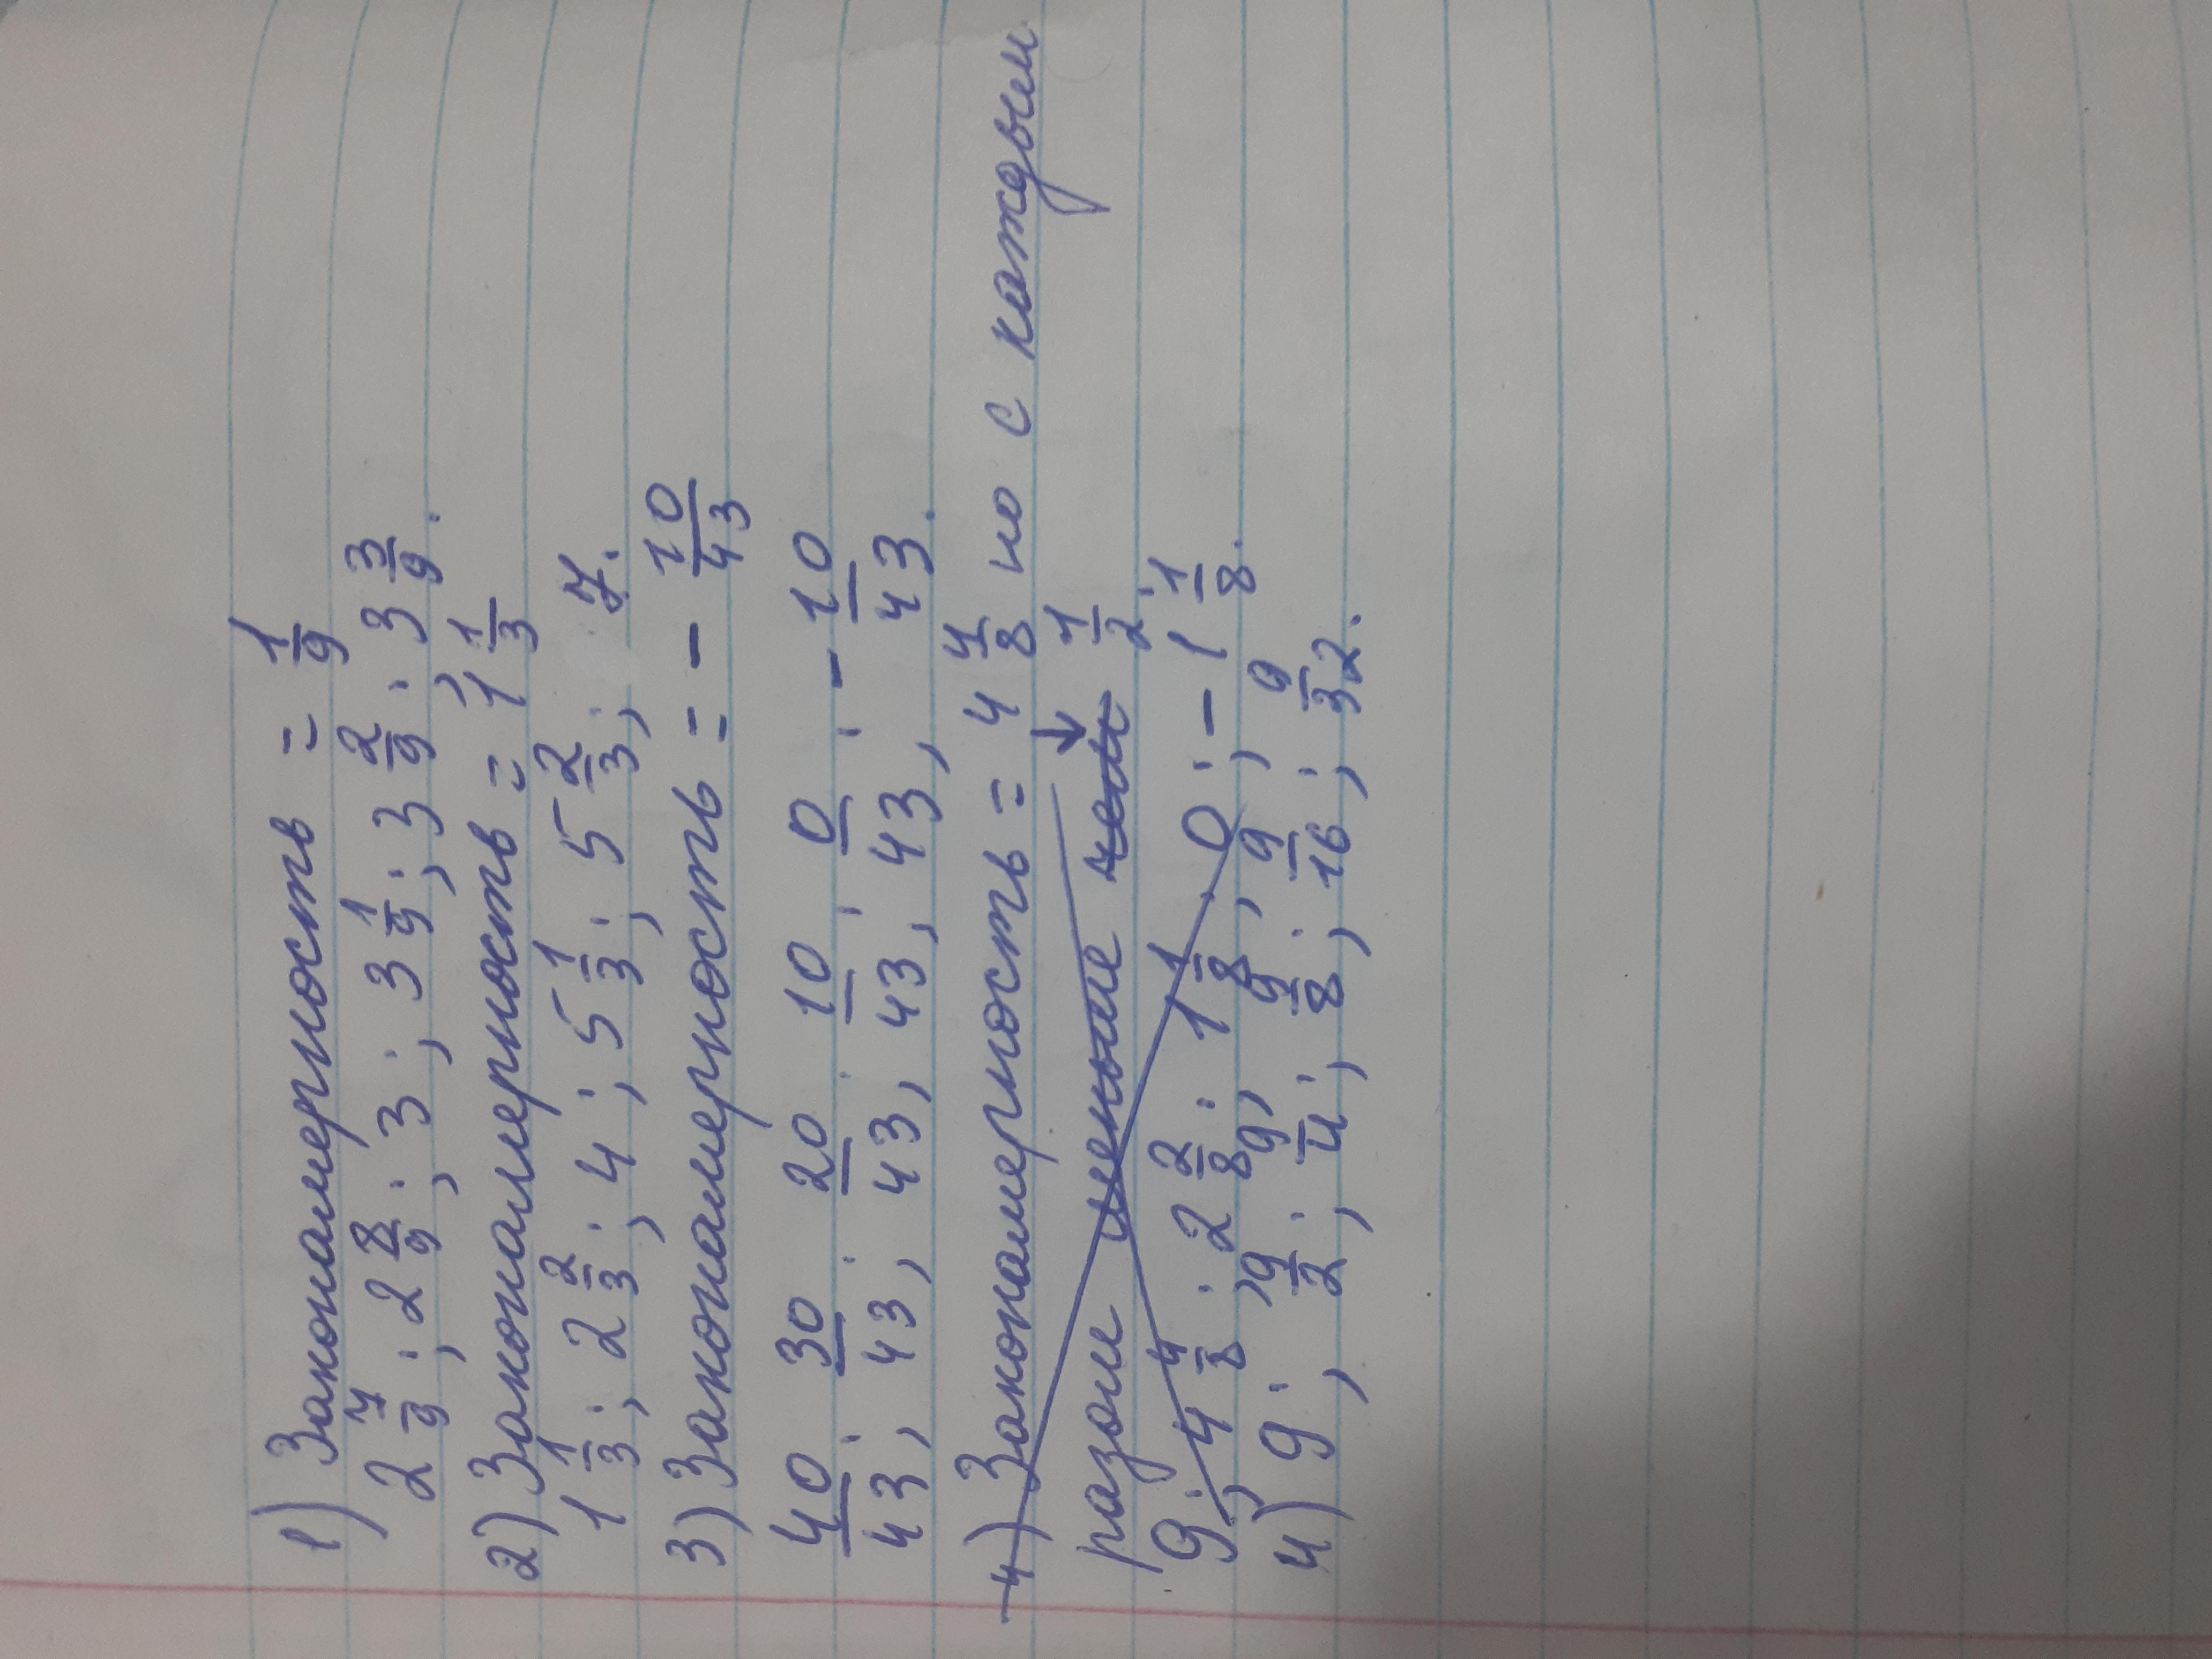 1) Закономерность = 1/9
2 7/9; 2 8/9; 3; 3 1/9; 3 2/9; 3 3/9.
2) Закономерность = 1 1/3
1 1/3; 2 2/3; 4; 5 1/3; 5 2/3; 7.
3) Закономерность = - 10/43
40/43; 30/43; 20/43; 10/43; 0/43; - 10/43.
4) Закономерность = 4 4/8 но с каждым
разом меньше 1/2.
9; 4 4/8; 2 2/8; 1 1/8; 0; - 1 1/8.
4) 9; 9/2; 9/4; 9/8; 9/16; 9/32.